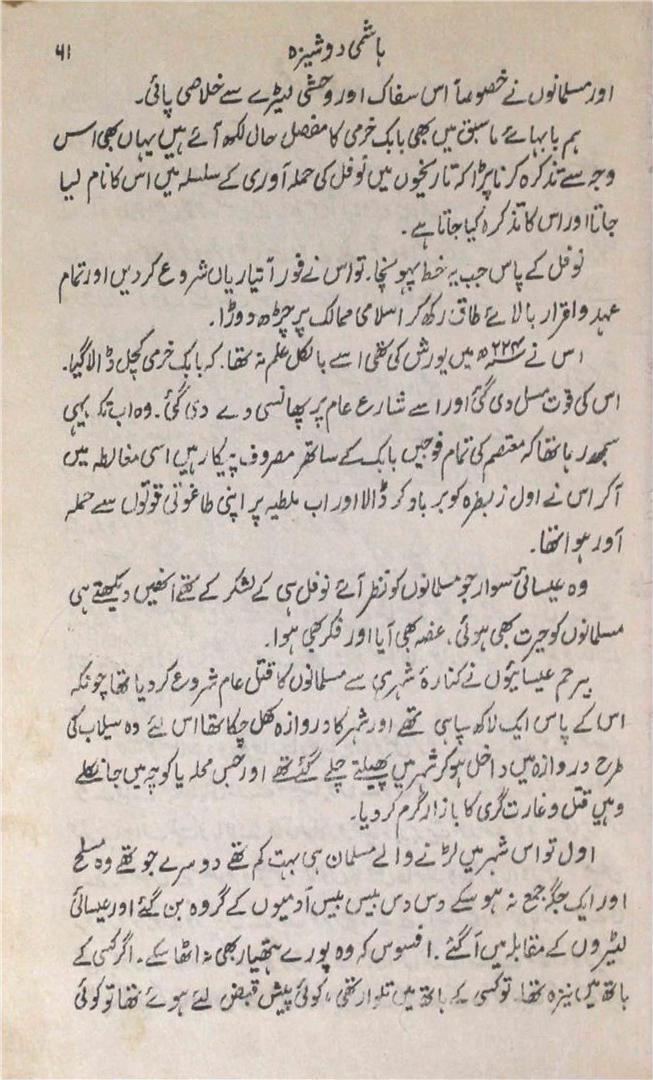 ہاشمی دوشیزہ
۶۱
اور مسلمانوں نے خصوصاً اس سفاک اور وحشی لیٹرے سے خلاصی پائی۔
ہم بابہائے ماسبق میں بھی بابک خرمی کا مفصل حال لکھ آئے ہیں یہاں بھی اس
وجہ سے تذکرہ کرنا پڑا کہ تاریخوں میں نوفل کی حملہ آوری کے سلسلہ میں اس کا نام لیا
جاتا اور اس کا تذکرہ کیا جاتا ہے۔
نوفل کے پاس جب یہ خط پہونچا۔ تو اس نے فوراً تیاریاں شروع کر دیں اور تمام
عہد و اقرار بالائے طاق رکھ کر اسلامی ممالک پر چڑھ دوڑا۔
اس نے ۲۲۴ھ میں یورش کی تھی اسے بالکل علم نہ تھا۔ کہ بابک خرمی کچل ڈالا گیا۔
اس کی قوت مسل دی گئی اور اسے شارع عام پر پھانسی دے دی گئی۔ وہ اب تک یہی
سمجھ رہا تھا کہ معتصم کی تمام فوجیں بابک کے ساتھ مصروف پیکار ہیں اسی مغالطہ میں
آکر اس نے اول زبطرہ کو برباد کر ڈالا اور اب ملطیہ پر اپنی طاغوتی قوتوں سے حملہ
آور ہوا تھا۔
وہ عیسائی سوار جو مسلمانوں کو نظر آئے نوفل ہی کے لشکر کے تھے انھیں دیکھتے ہی
مسلمانوں کو حیرت بھی ہوئی، غصہ بھی آیا اور فکر بھی ہوا۔
بیرحم عیسائیوں نے کنارۂ شہر ہی سے مسلمانوں کا قتل عام شروع کر دیا تھا چونکہ
اس کے پاس ایک لاکھ سپاہی تھے اور شہر کا دروازہ کھل چکا تھا اس لئے وہ سیلاب کی
طرح دروازہ میں داخل ہو کر شہر میں پھیلتے چلے گئے تھے اور جس محلہ یا کوچہ میں جا نکلے
وہیں قتل و غارت گری کا بازار گرم کر دیا۔
اول تو اس شہر میں لڑنے والے مسلمان ہی بہت کم تھے دوسرے جو تھے وہ مسلح
اور ایک جگہ جمع نہ ہو سکے دس دس بیس بیس آدمیوں کے گروہ بن گئے اور عیسائی
لیٹروں کے مقابلہ میں آگئے۔ افسوس کہ وہ پورے ہتھیار بھی نہ اٹھا سکے۔ اگر کسی کے
ہاتھ میں نیزہ تھا۔ تو کسی کے ہاتھ میں تلوار تھی، کوئی پیش قبض لئے ہوئے تھا تو کوئی